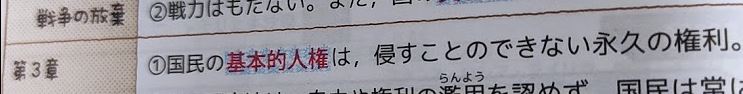 戦争の放棄
②戦力はもたない。また，
第3章
①国民の基本的人権は，侵すことのできない永久の権利。
らんよう
権利の濫用を認めず，国民は常に